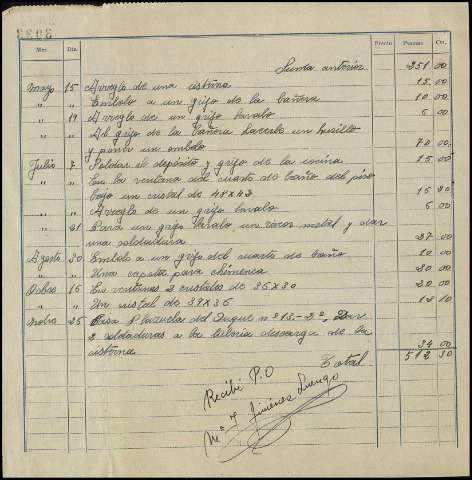 3933
Mes Día Precio Pesetas Cts.
Suma anterior 351 00
Mayo 15 Arreglo de una cisterna 15 00
" " Embolo a un grifo de la bañera 10 00
" 19 Arreglo de un grifo lavabo 6 00
" " Al grifo de la bañera hacerle un husillo
y poner un embolo 70 00
Julio 7 Soldar el depósito y grifo de la cocina 15 00
" " En la ventana del cuarto de baño del piso
bajo un cristal de 48x43 15 20
" " Arreglo de un grifo lavabo 6 00
" 21 Para un grifo lavabo un metal y dar
una soldadura 27 00
Agosto 30 Embolo a un grifo del cuarto de baño 10 00
" " Una capeta para chimenea 30 00
Octbre 16 En ventanas 2 cristales de 36x30 20 00
" " Un cristal de 37x36 13 10
26 Casa Plazuela del Duque nº 13-2º, Dar
2 soldaduras a la tuberia descarga de la
cisterna 34 00
Total 512 30
Recibí P.O
Mª J. Jimenez Luengo